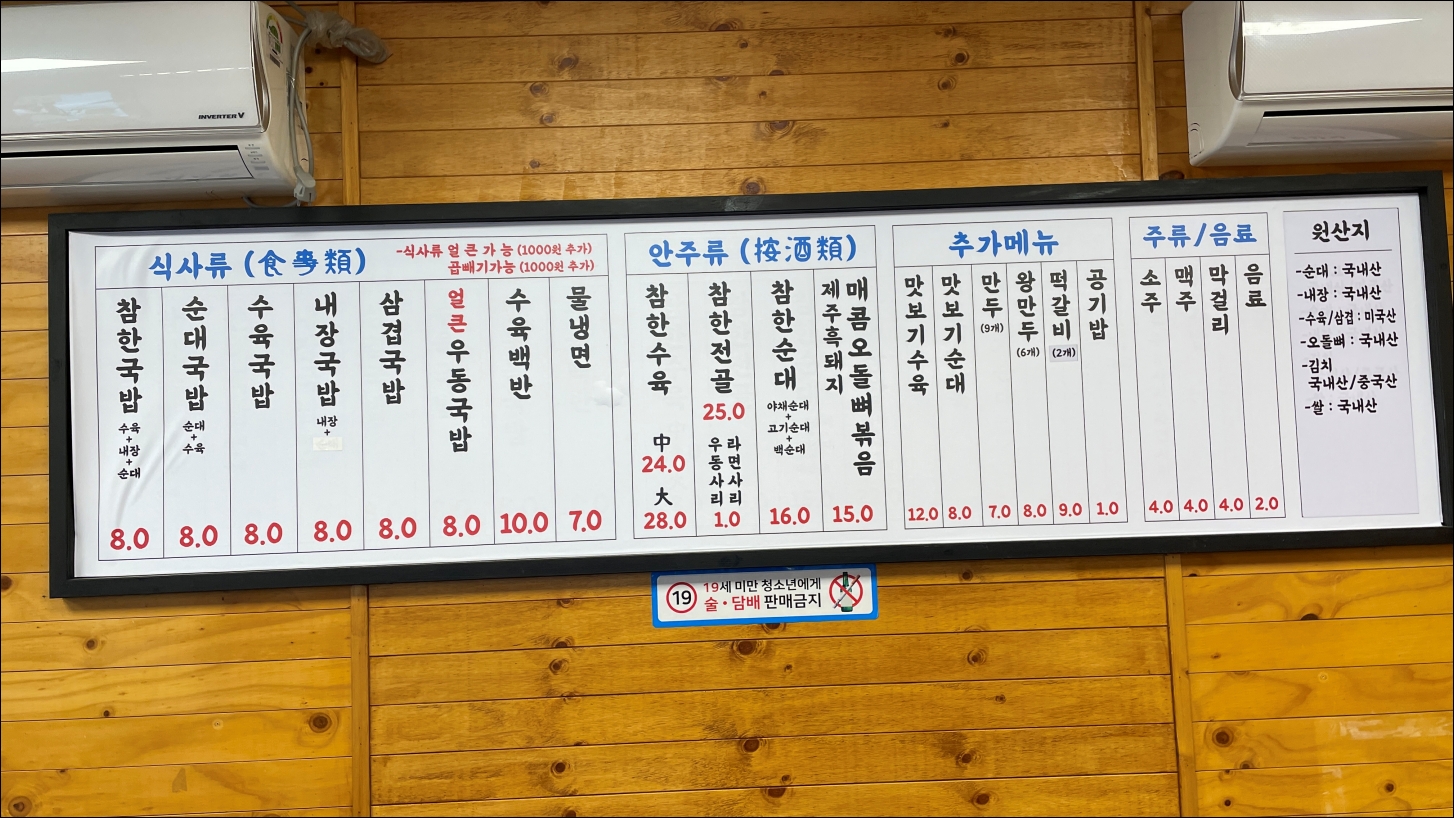 INVERTER V
식사류 (食事類)
-식사류 얼 큰 가 능 (1000원 추가)
곱빼기가능 (1000원 추가)
참한국밥
수육
+
내장
+
순대
8.0
순대국밥
순대
+
수육
8.0
수육국밥
8.0
내장국밥
내장
+
8.0
삼겹국밥
8.0
얼큰우동국밥
8.0
수육백반
10.0
물냉면
7.0
안주류 (按酒類)
참한수육
中
24.0
大
28.0
참한전골
25.0
라면사리
우동사리
1.0
참한순대
야채순대
+
고기순대
+
백순대
16.0
매콤오돌뼈볶음
제주흑돼지
15.0
추가메뉴
맛보기수육
12.0
맛보기순대
8.0
만두
(9개)
7.0
왕만두
(6개)
8.0
떡갈비
(2개)
9.0
공기밥
1.0
주류/음료
소주
4.0
맥주
4.0
막걸리
4.0
음료
2.0
원산지
-순대 : 국내산
-내장 : 국내산
-수육/삼겹 : 미국산
-오돌뼈 : 국내산
-김치
국내산/중국산
-쌀 : 국내산
19
19세 미만 청소년에게
술・담배 판매금지